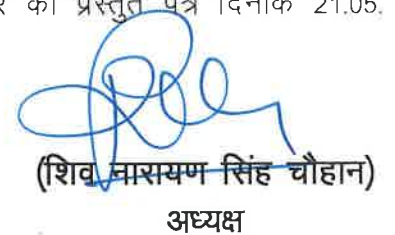 को प्रस्तुत पत्र दिनांक 21.05.
(शिव नारायण सिंह चौहान)
अध्यक्ष